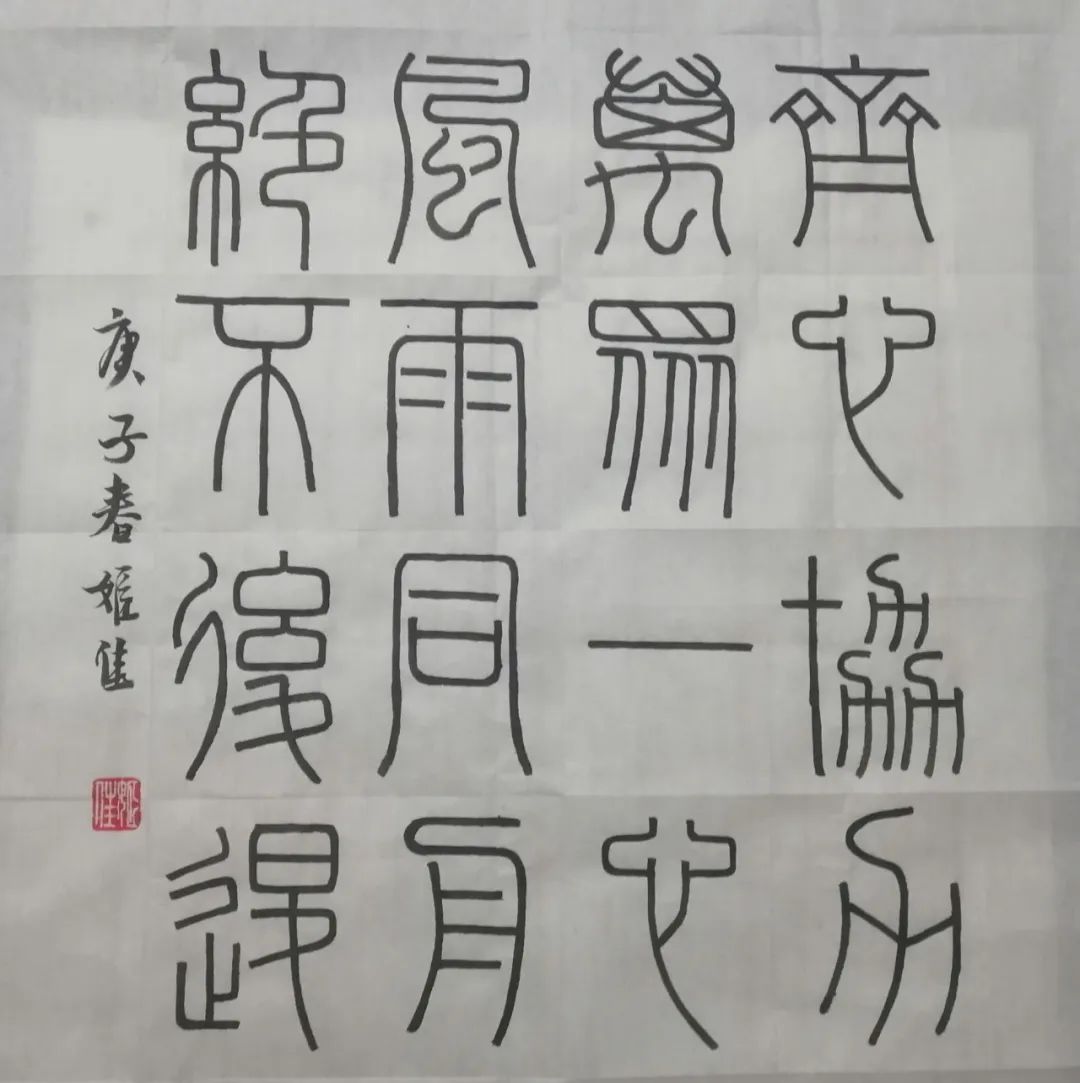 齊心協力
萬眾一心
風雨同舟
絕不後退
庚子春姬佳